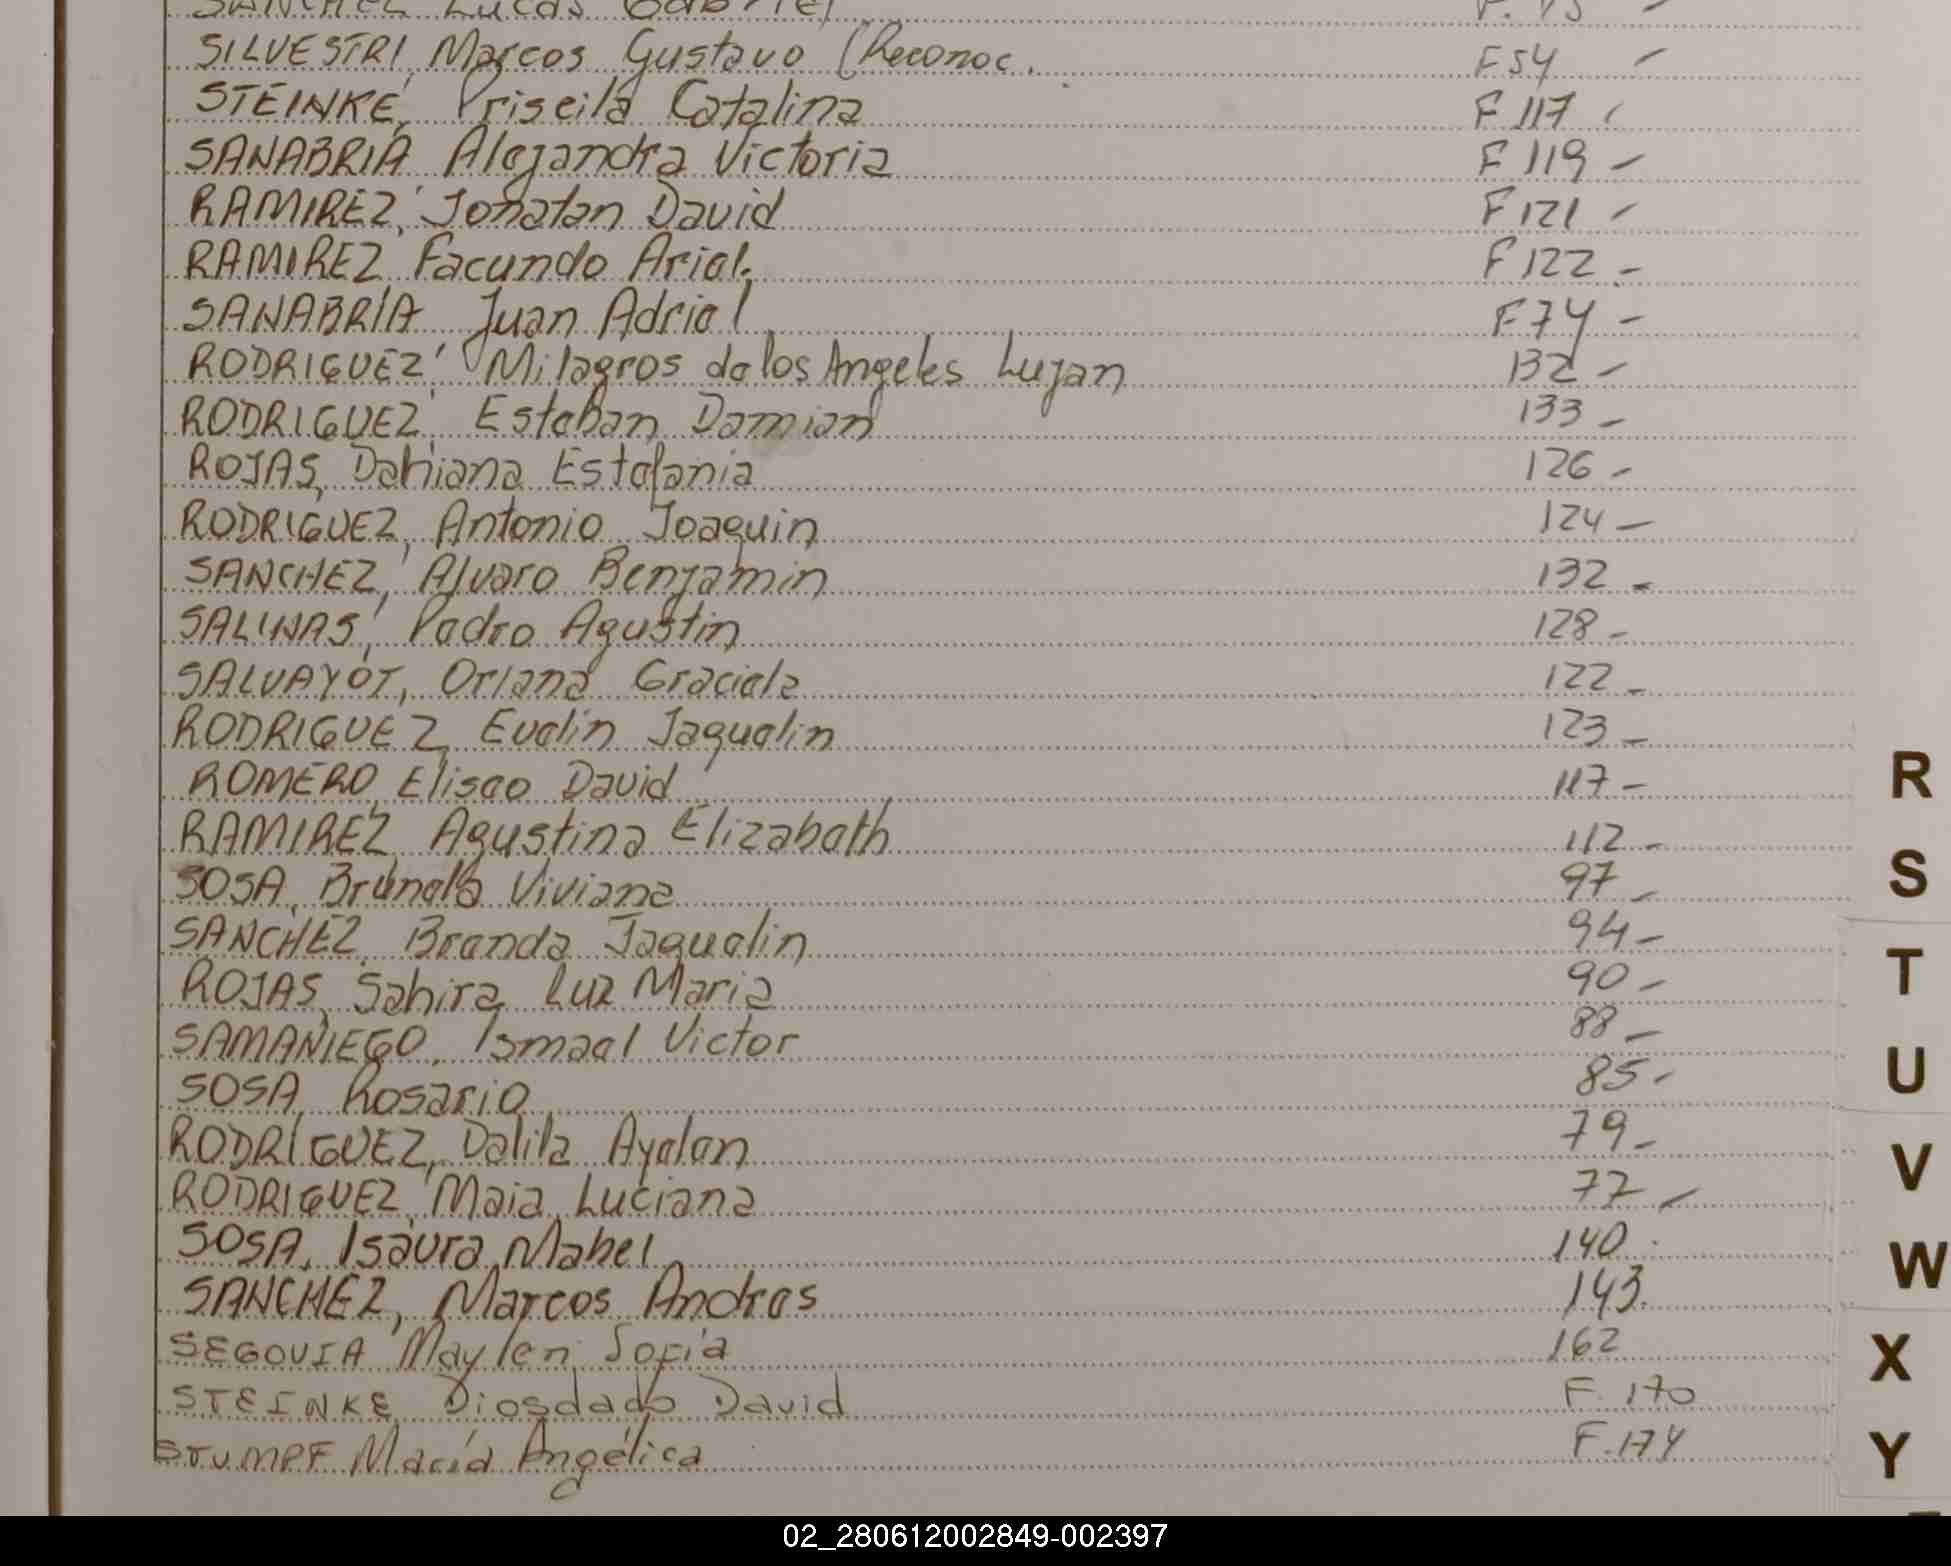 SANCHEZ Lucas Gabriel F. 73 -
SILVESTRI, Marcos Gustavo (Reconoc. F 54 -
STEINKE, Priscila Catalina F 117
SANABRIA Alejandra Victoria F 119 -
RAMIREZ, Jonatan David F 121 -
RAMIREZ, Facundo Ariel. F 122 -
SANABRIA Juan Adriel F 74 -
RODRIGUEZ, Milagros de los Angeles Lujan 132 -
RODRIGUEZ, Esteban Damian 133 -
ROJAS, Dahiana Estefania 126 -
RODRIGUEZ, Antonio Joaquin 124 -
SANCHEZ, Alvaro Benjamin 132 -
SALINAS, Pedro Agustin 128 -
SALVAYOT, Oriana Graciela 122 -
RODRIGUEZ, Evelin Jaquelin 123 -
ROMERO, Eliseo David 117 -
RAMIREZ, Agustina Elizabeth 112 -
SOSA, Brunela Viviana 97 -
SANCHEZ, Brenda Jaquelin 94 -
ROJAS, Sahira Luz Maria 90 -
SAMANIEGO, Ismael Victor 88 -
SOSA, Rosario 85 -
RODRIGUEZ, Dalila Ayelen 79 -
RODRIGUEZ, Maia Luciana 77 -
SOSA, Isaura Mabel 140 -
SANCHEZ, Marcos Andres 143.
SEGOVIA Maylen Sofia 162
STEINKE, Diosdado David F. 170
STUMPF María Angélica F. 174
R
S
T
U
V
W
X
Y
02_280612002849-002397